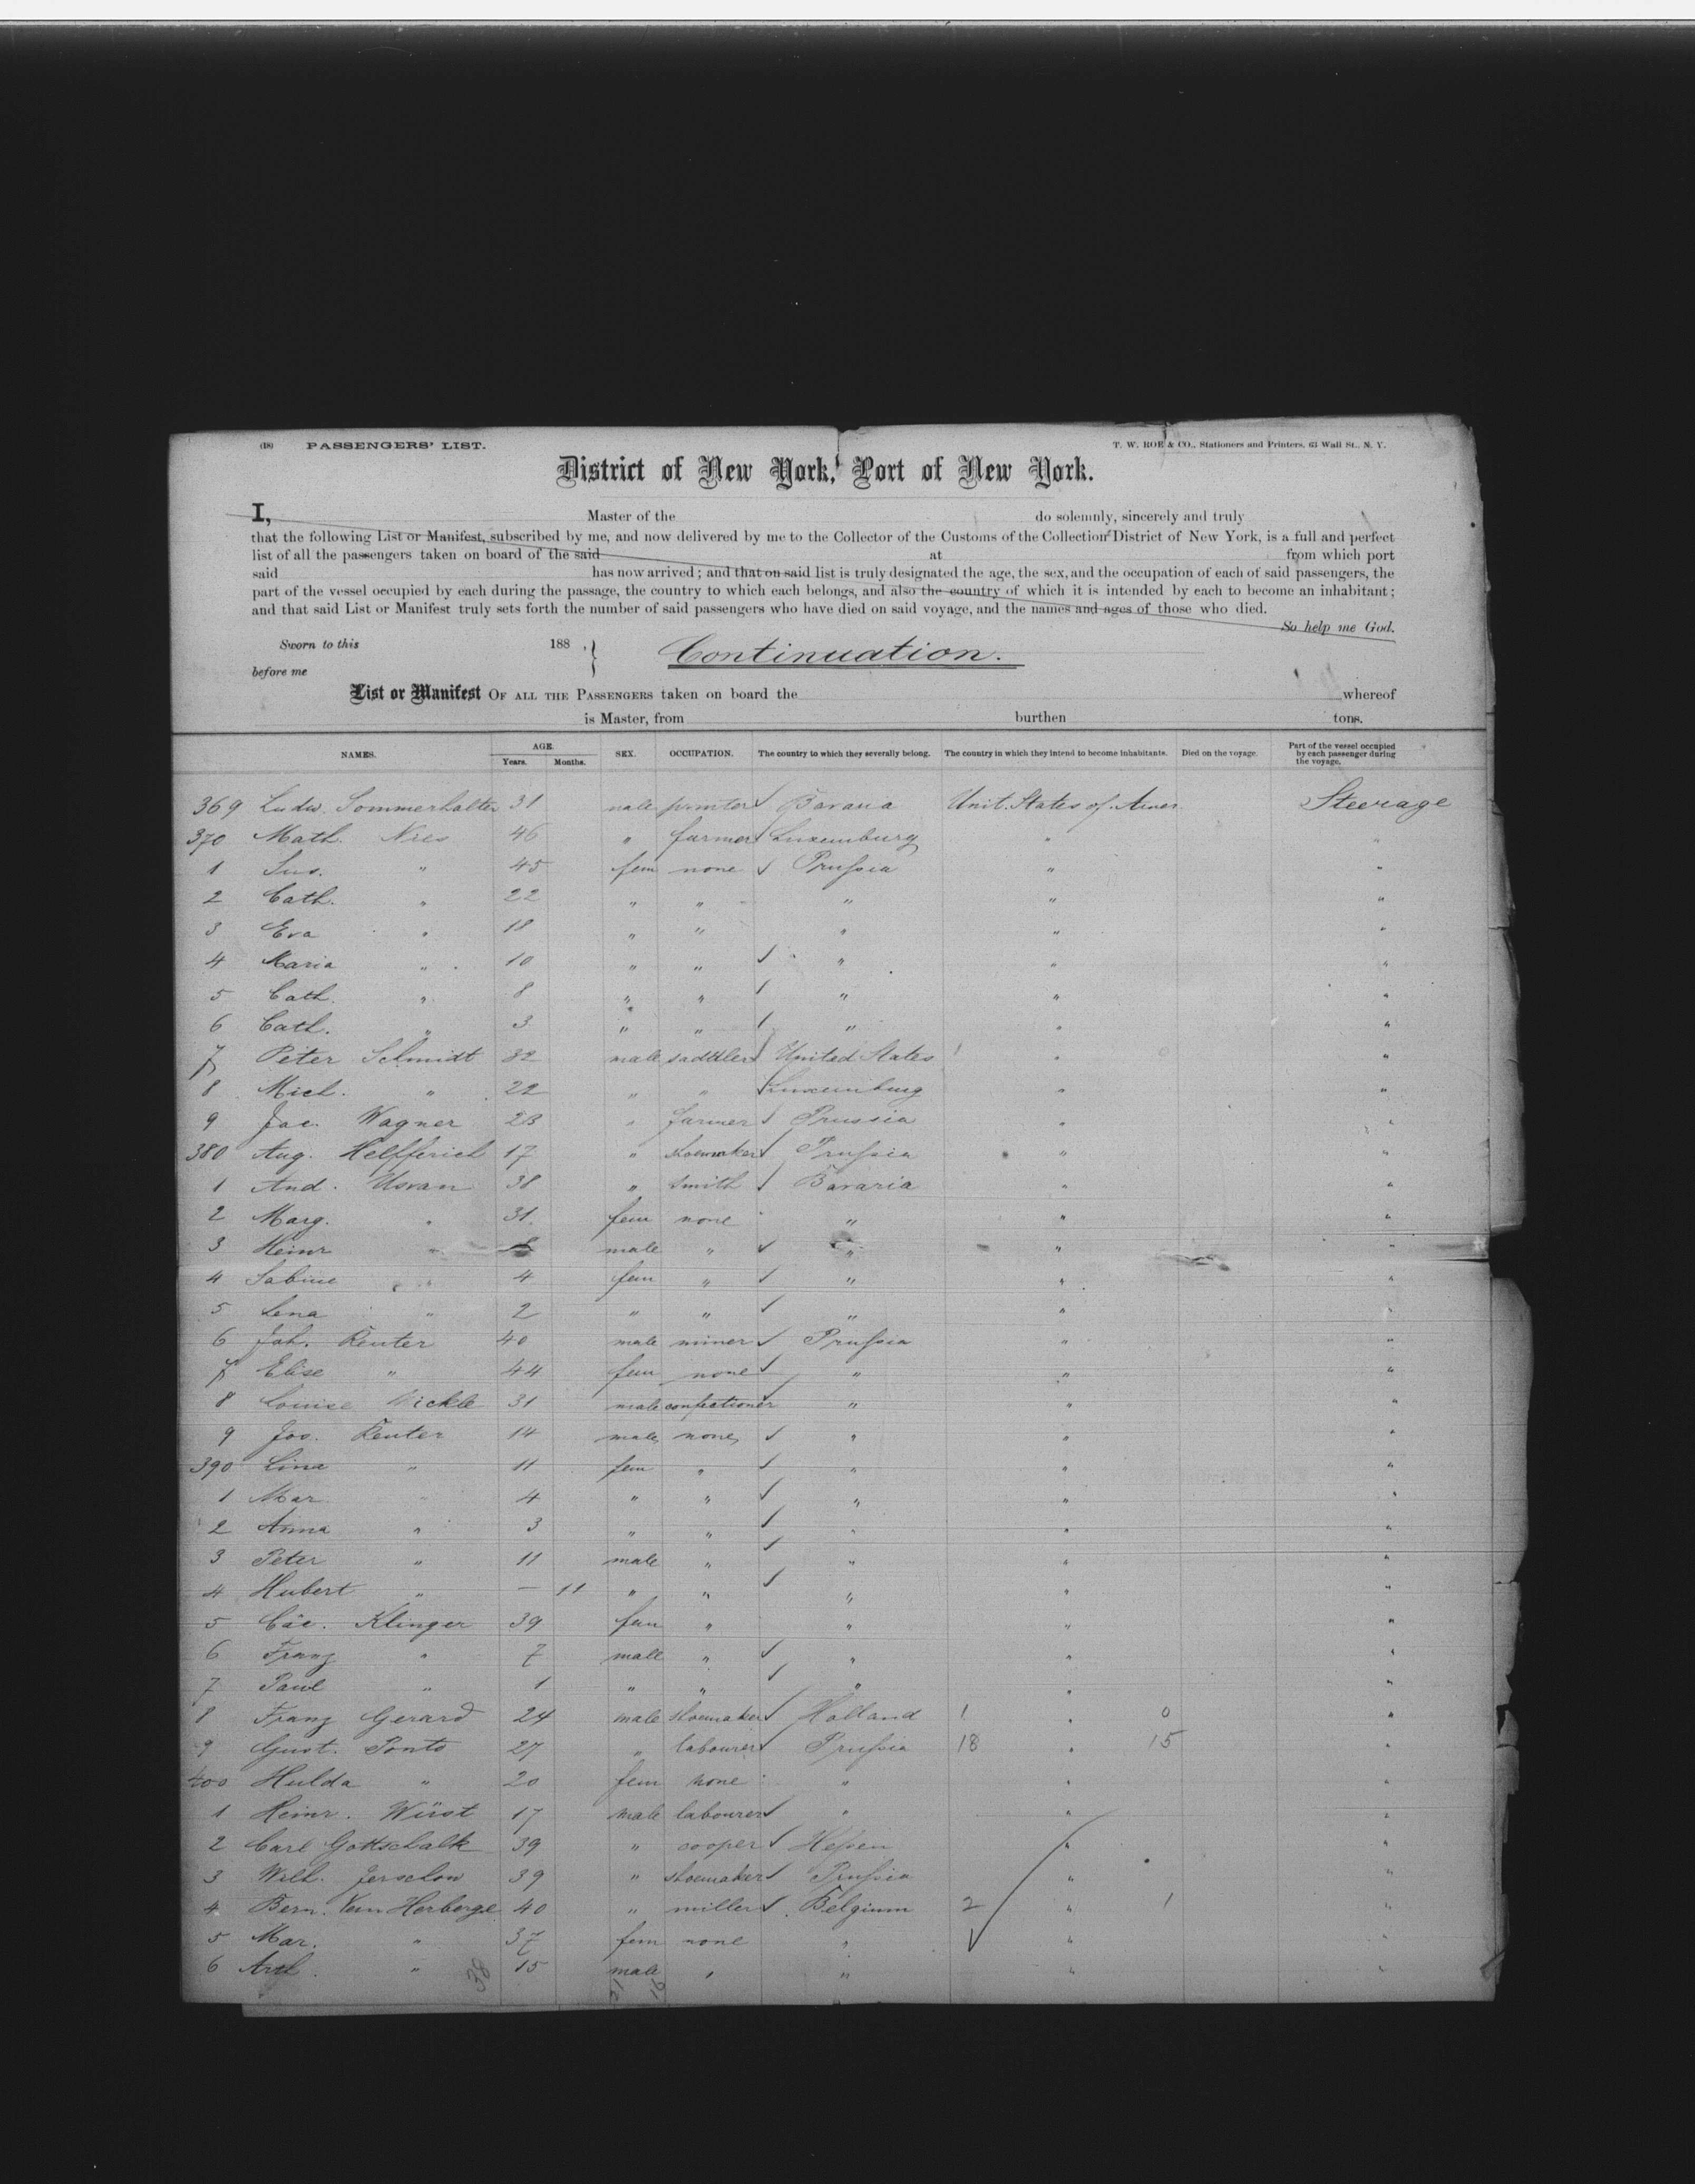 (18) PASSENGERS' LIST. T. W. ROE & CO., Stationers and Printers, 63 Wall St., N. Y.
District of New York, Port of New York.
I, Master of the do solemnly, sincerely and truly
that the following List or Manifest, subscribed by me, and now delivered by me to the Collector of the Customs of the Collection District of New York, is a full and perfect
list of all the passengers taken on board of the said at from which port
said has now arrived; and that on said list is truly designated the age, the sex, and the occupation of each of said passengers, the
part of the vessel occupied by each during the passage, the country to which each belongs, and also the country of which it is intended by each to become an inhabitant;
and that said List or Manifest truly sets forth the number of said passengers who have died on said voyage, and the names and ages of those who died.
So help me God.
Sworn to this 188 , }
before me
Continuation.
List or Manifest OF ALL THE PASSENGERS taken on board the whereof
is Master, from burthen tons.
NAMES. AGE. Years. Months. SEX. OCCUPATION. The country to which they severally belong. The country in which they intend to become inhabitants. Died on the voyage. Part of the vessel occupied by each passenger during the voyage.
369 Ludw. Sommerhalter 31 male printer Bavaria Unit. States of Amer. Steerage
370 Math. Nies 46 " farmer Luxemburg " "
1 Sus. " 45 fem none Prussia " "
2 Cath. " 22 " " " " "
3 Eva " 18 " " " " "
4 Maria " 10 " " " " "
5 Cath. " 8 " " " " "
6 Cath. " 3 " " " " "
7 Peter Schmidt 32 male saddler United States " "
8 Mich. " 22 " " Luxemburg " "
9 Jac. Wagner 23 " farmer Prussia " "
380 Aug. Helfferich 17 " shoemaker Prussia " "
1 And. 38 " smith Bavaria " "
2 Marg. " 31 fem none " " "
3 Heinr " male " " " "
4 Sabine " 4 fem " " " "
5 Lena " 2 " " " " "
6 Joh. Reuter 40 male miner Prussia " "
7 Elise " 44 fem none " " "
8 Louise Mickle 31 male confectioner " " "
9 Jos. Reuter 14 male none " " "
390 Lina " 11 fem " " " "
1 Mar " 4 " " " " "
2 Anna " 3 " " " " "
3 Peter " 11 male " " " "
4 Hubert " — 11 " " " " "
5 Cäc. Klinger 39 fem " " " "
6 Franz " 7 male " " " "
7 Paul " 1 " " " " "
8 Franz Gerard 24 male shoemaker Holland 1 " 0 "
9 Gust. Ponto 27 " labourer Prussia 18 " 15 "
400 Hulda " 20 fem none " " "
1 Heinr. Wüst 17 male labourer " " "
2 Carl Gottschalk 39 " cooper Hessen " "
3 Wilh. Jerschow 39 " shoemaker Prussia " "
4 Bern. Van Herberge 40 " miller Belgium 2 " 1 "
5 Mar. " 37 fem none " " "
6 " 15 male " " " "